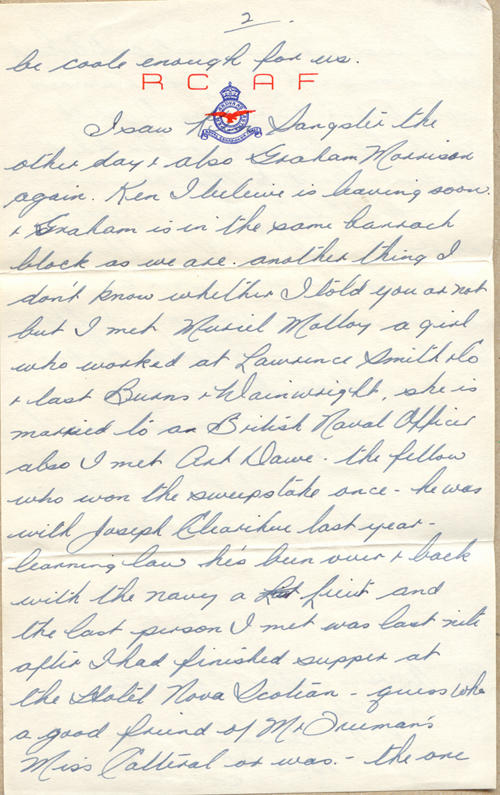 2.
be cool enough for us.
R C A F
I saw Sangster the
other day & also Graham Morrison
again. Ken I beleive is leaving soon
& Graham is in the same barrack
block as we are. another thing I
don't know whether I told you or not
but I met Muriel Molloy a girl
who worked at Lawrence Smith & Co
& last Burns & Wainwright, she is
married to an British Naval Officer
also I met Art Dawe - the fellow
who won the sweepstake once - he was
with Joseph Clearihue last year -
learning law he's been over & back
with the navy a Lieut and
the last person I met was last nite
after I had finished supper at
the Hotel Nova Scotian - guess who
a good friend of Mr Truman's
Miss Catteral or was. - the one